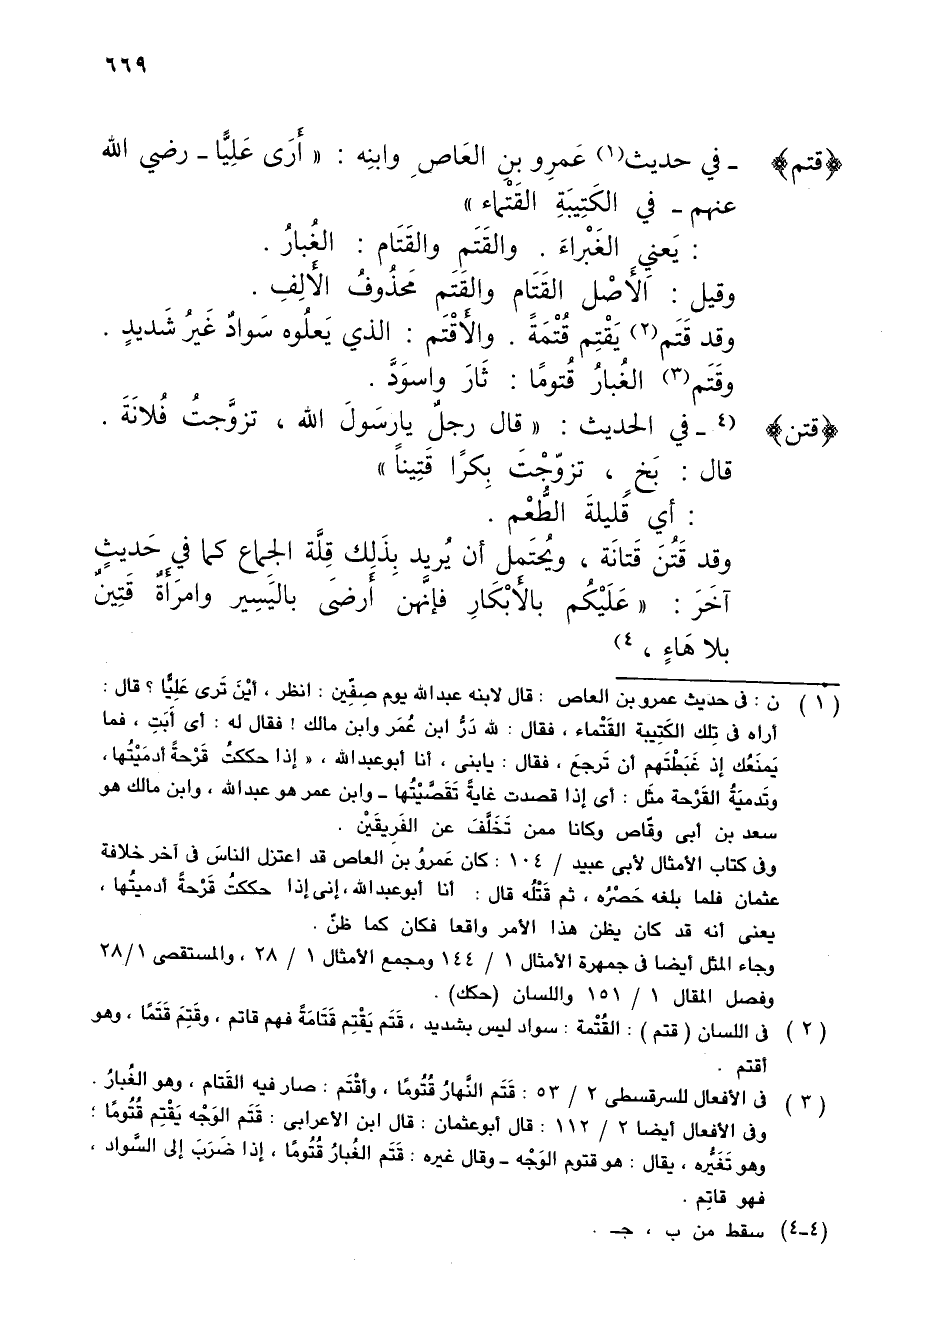 ٦٦٩
﴿قتم﴾ ـ في حديث(١) عَمرِو بنِ العَاصِ وابنِه : « أَرَى عَلِيًّا ـ رضي الله
عنهم ـ في الكَتِيبَةِ القَتْماء »
: يَعني الغَبْراءَ . والقَتَم والقَتَام : الغُبارُ .
وقيل : الَأصْل القَتَام والقَتَم مَحذُوفُ الأَلِفِ .
وقد قَتَم(٢) يَقْتِم قُتْمَةً . والأَقْتَم : الذي يَعلُوه سَوادٌ غَيرُ شَديدٍ .
وقَتَم(٣) الغُبارُ قُتومًا : ثَارَ واسوَدَّ .
﴿قتن﴾ (٤ ـ في الحديث : « قال رجلٌ يارسَولَ الله ، تزوَّجتُ فُلانَةَ .
قال : بَخٍ ، تزوّجْتَ بِكرًا قَتِيناً »
: أي قَليلةَ الطُّعْم .
وقد قَتُنَ قَتانَة ، ويُحتَمل أن يُريد بِذَلِك قِلَّة الجِماع كما في حَديثٍ
آخَرَ : « عَلَيْكُم بالأَبْكَارِ فإنَّهن أَرضَى باليَسِير وامرَأَةٌ قَتِينٌ
بلا هَاءٍ ، ٤)
(١) ن : فى حديث عمرو بن العاص : قال لابنه عبدالله يوم صِفِّين : انظر ، أيْنَ تَرى عَلِيًّا ؟ قال :
أراه فى تِلك الكَتِيبة القَتْماء ، فقال : لله دَرُّ ابن عُمَر وابن مالك ! فقال له : أى أبَتِ ، فما
يَمنَعُك إذ غَبَطْتَهم أن تَرجعَ ، فقال : يابنى ، أنا أبوعبدالله ، « إذا حككتُ قَرْحةً أدميْتُها ،
وتَدميَةُ القَرْحة مثَل : أى إذا قصدت غايةً تَقَصَّيْتُها ـ وابن عمر هو عبدالله ، وابن مالك هو
سعد بن أبى وقّاص وكانا ممن تَخَلَّفَ عن الفَريقَيْن .
وفى كتاب الأمثال لأبى عبيد / ١٠٤ : كان عَمروُ بن العاص قد اعتزل الناسَ فى آخر خلافة
عثمان فلما بلغه حَصْرُه ، ثم قَتْلُه قال : أنا أبوعبدالله ، إنى إذا حككتُ قَرْحةً أدميتُها ،
يعنى أنه قد كان يظن هذا الأمر واقعا فكان كما ظنّ .
وجاء المثل أيضا فى جمهرة الأمثال ١ / ١٤٤ ومجمع الأمثال ١ / ٢٨ ، والمستقصى ١/ ٢٨
وفصل المقال ١ / ١٥١ واللسان (حكك) .
(٢) فى اللسان ( قتم ) : القُتْمة : سواد ليس بشديد ، قَتَم يَقْتِم قَتَامَةً فهم قاتم ، وقَتِمَ قَتَمًا ، وهو
أقتم .
(٣) فى الأفعال للسرقسطى ٢ / ٥٣ : قَتَم النَّهارُ قُتُومًا ، وأقْتَم : صار فيه القَتام ، وهو الغُبارُ .
وفى الأفعال أيضا ٢ / ١١٢ : قال أبوعثمان : قال ابن الأعرابى : قَتَم الوَجْه يَقْتِم قُتُومًا ؛
وهو تَغَيُّره ، يقال : هو قتوم الوَجْه ـ وقال غيره : قَتَم الغُبارُ قُتُومًا ، إذا ضَرَبَ إلى السَّواد ،
فهو قاتِم .
(٤–٤) سقط من ب ، جـ .